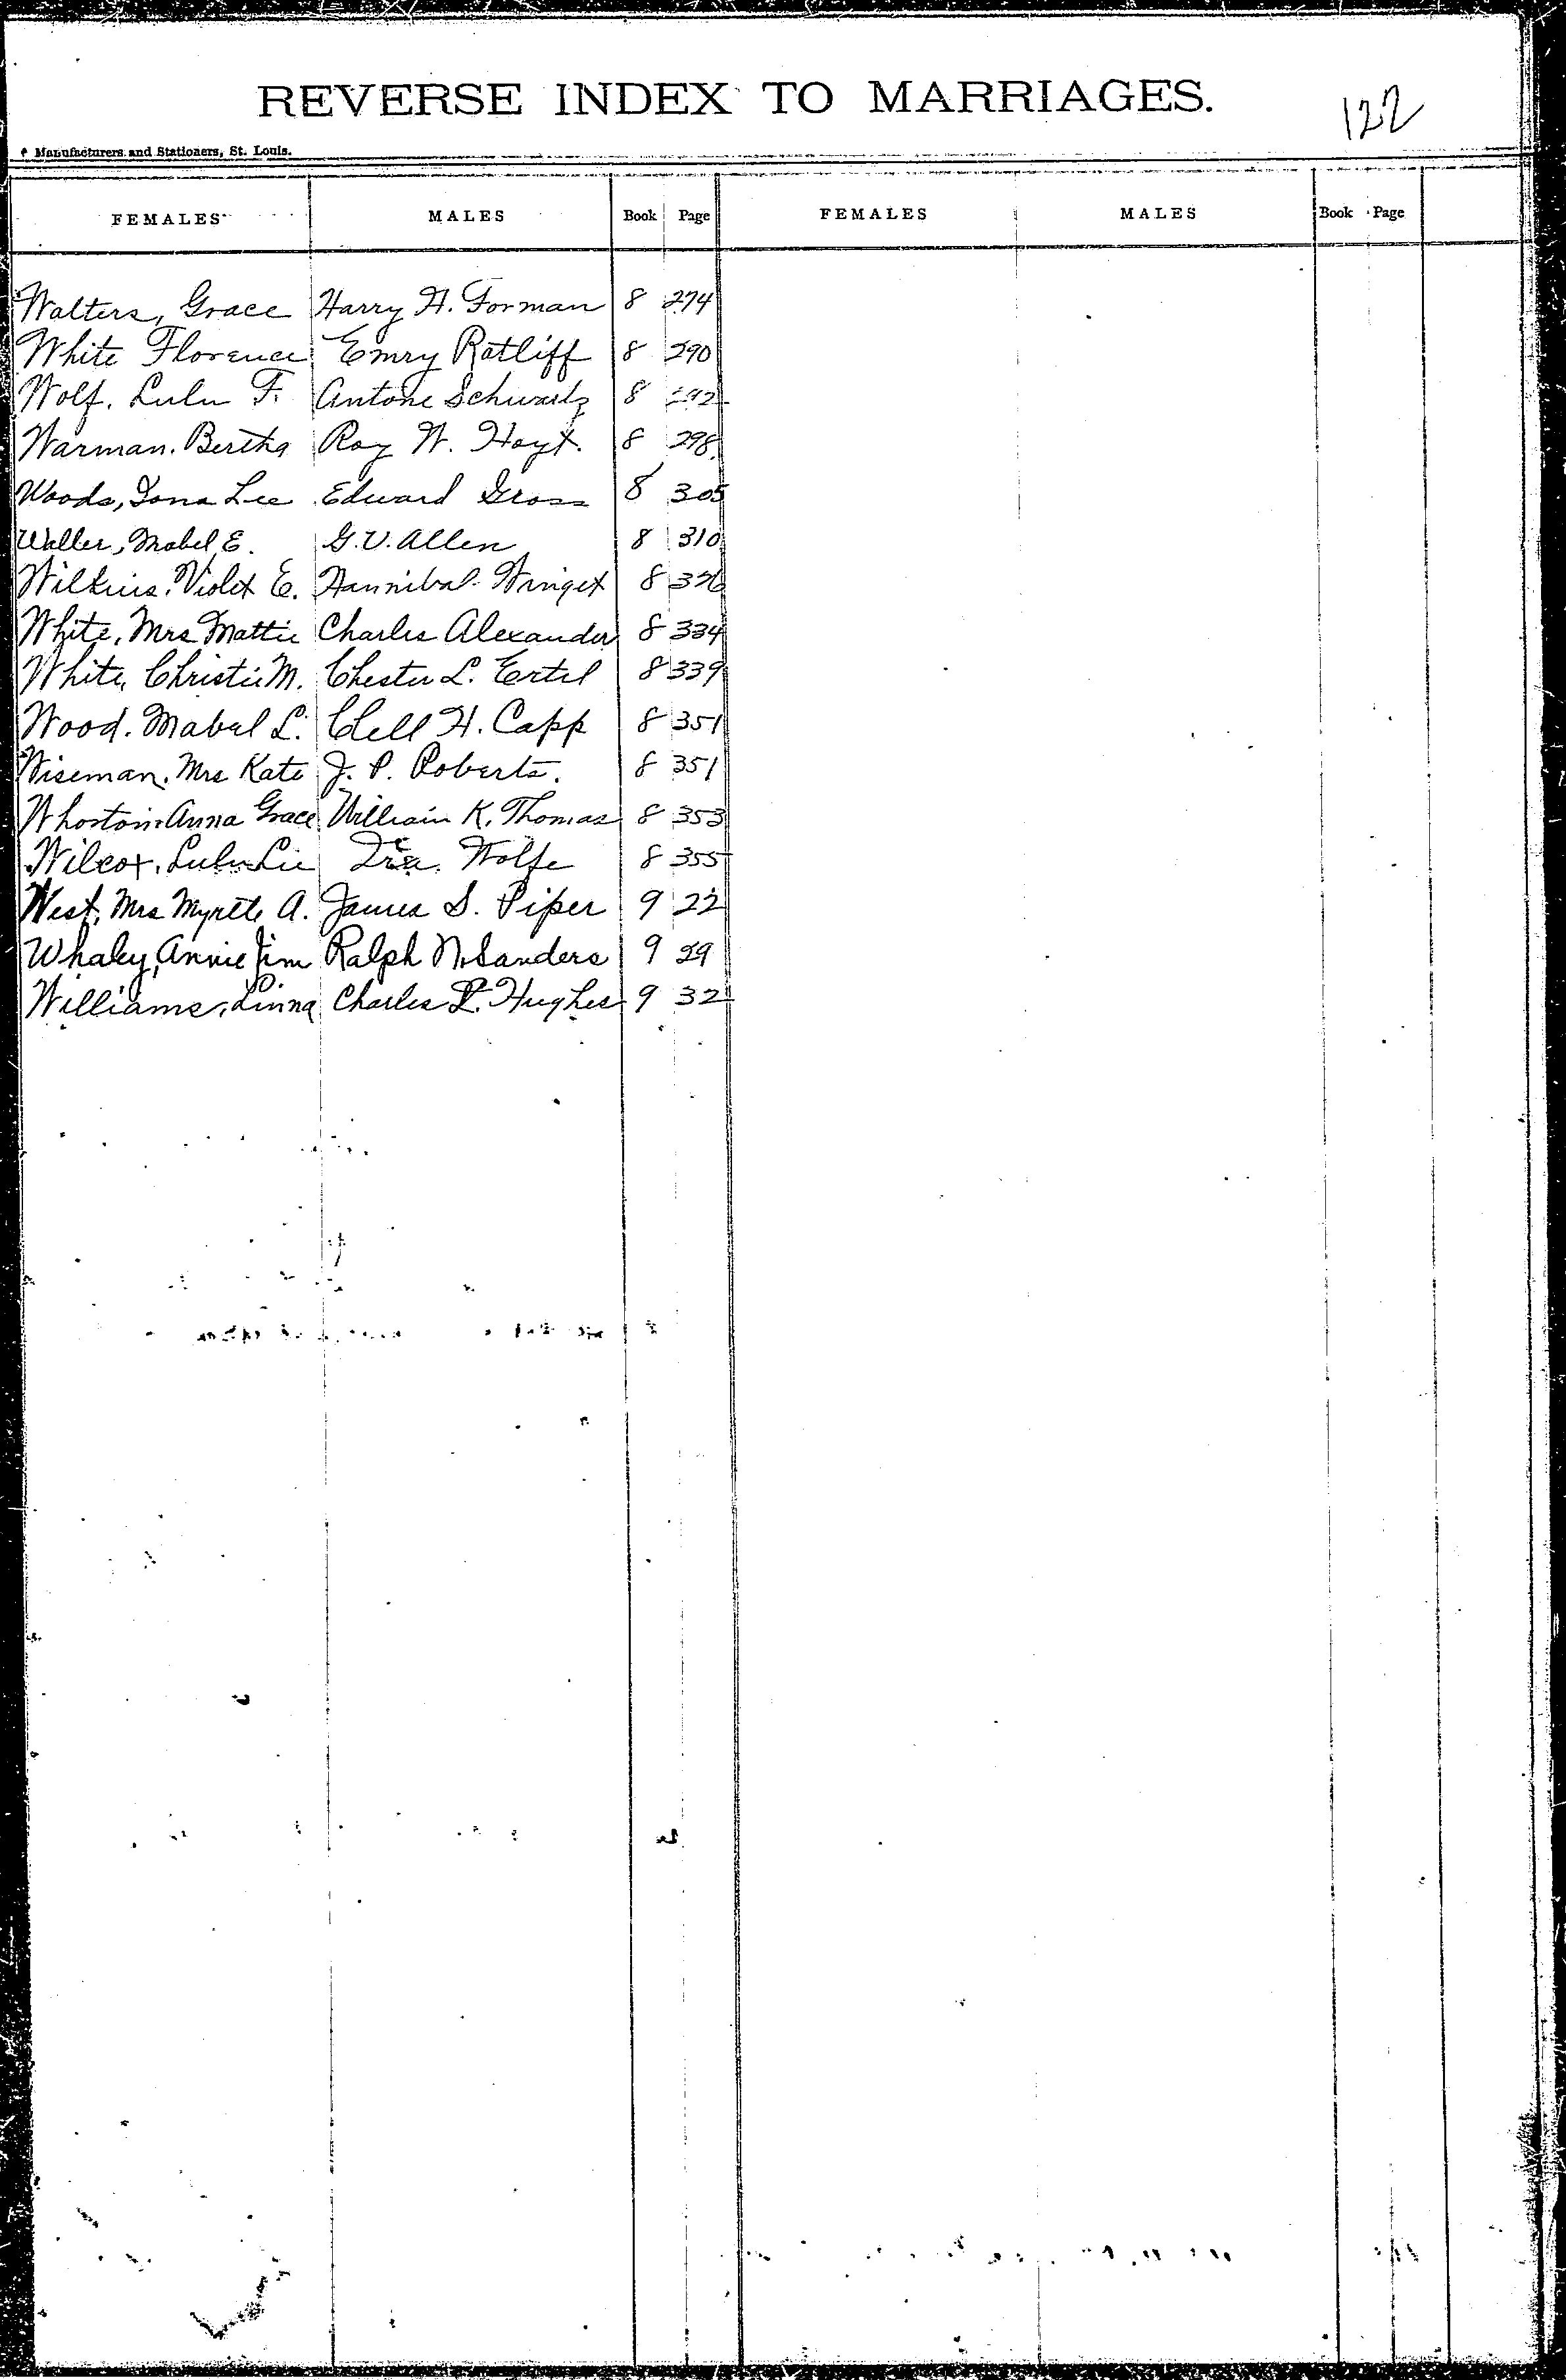 REVERSE INDEX TO MARRIAGES.
122
Manufacturers and Stationers, St. Louis.
FEMALES MALES Book Page FEMALES MALES Book Page
Walters, Grace Harry H. Forman 8 274
White Florence Emry Ratliff 8 290
Wolf, Lulu F. Antone Schwartz 8 292
Warman, Bertha Roy W. Hoyt. 8 298
Woods, Iona Lee Edward Gross 8 305
Waller, Mabel E. G.V. Allen 8 310
Wilkins, Violet E. Hannibal Winget 8
White, Mrs Mattie Charles Alexander 8 334
White, Christie M. Chester L. Ertel 8 339
Wood. Mabel L. Clell H. Capp 8 351
Wiseman, Mrs Kate J. P. Roberts. 8 351
Anna Grace William K. Thomas 8 353
Wilcox, Lulu Lie Ira Wolfe 8 355
West, Mrs Myrtle A. James S. Piper 9 22
Whaley, Annie Jim Ralph N. Sanders 9 29
Williams, Linna Charles L. Hughes 9 32